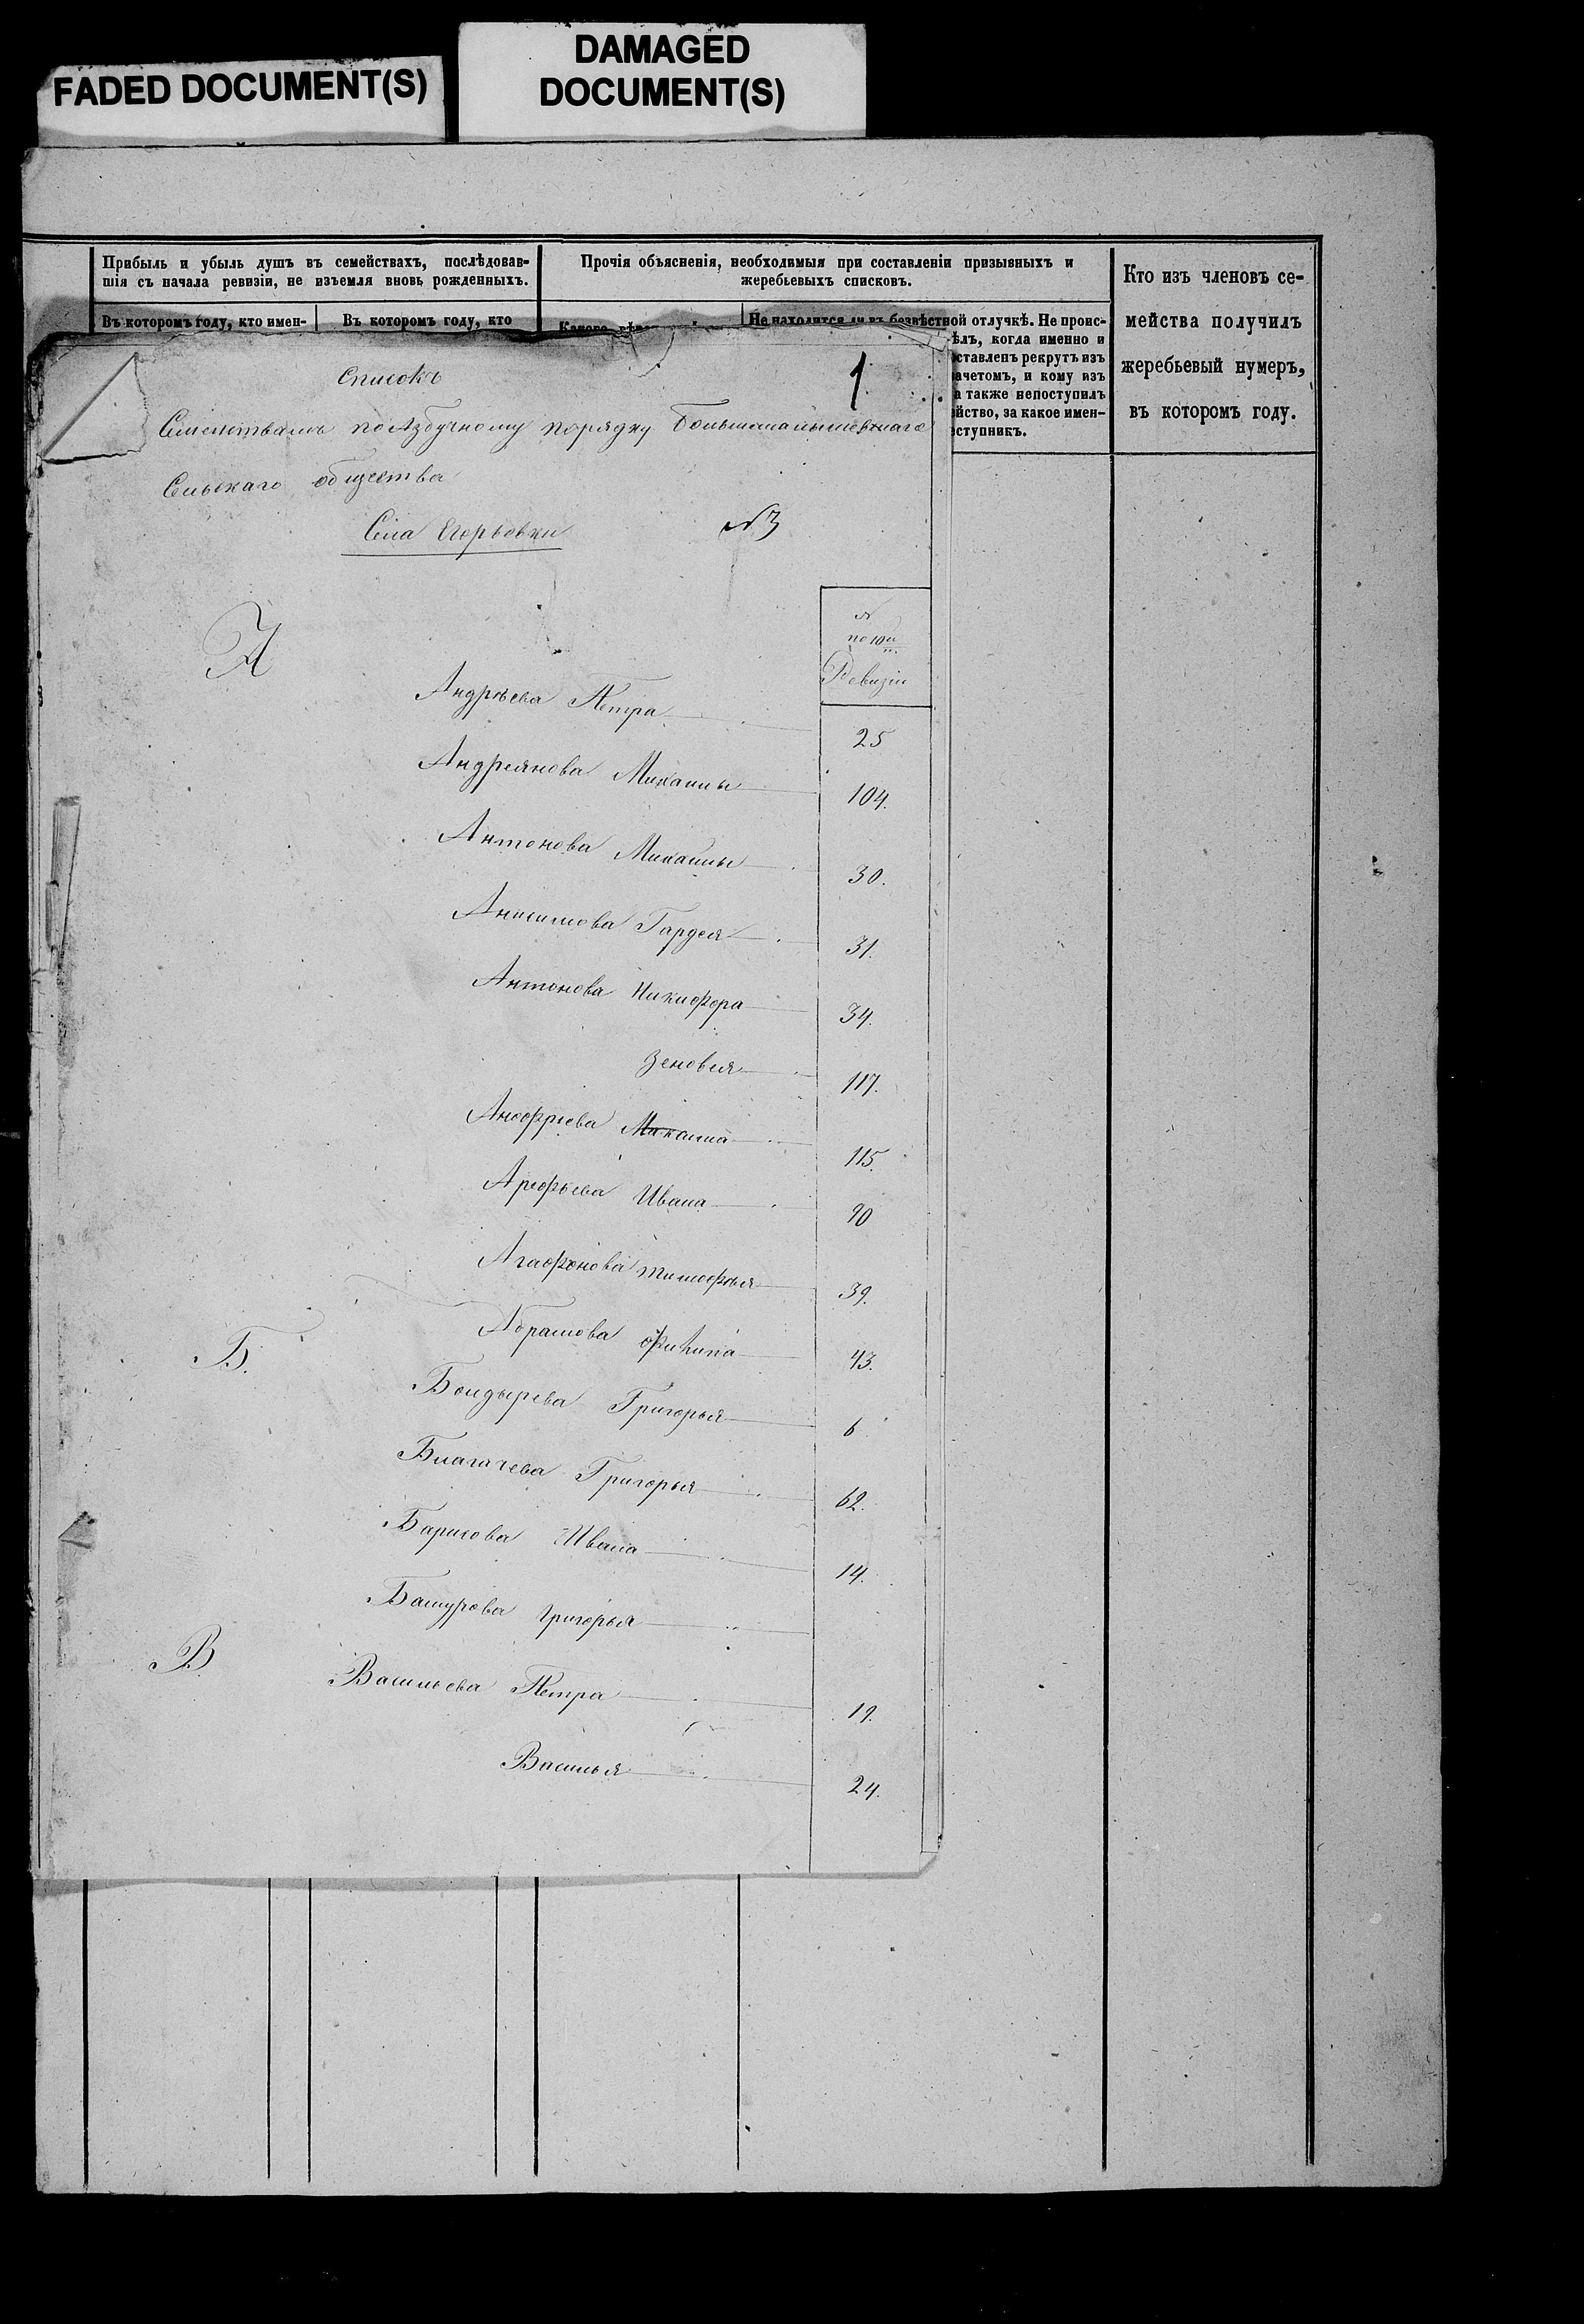 FADED DOCUMENT(S)
DAMAGED
DOCUMENT(S)
Прибыль и убыль душъ въ семействахъ, послѣдовав-
шія съ начала ревизіи, не изъемля вновь рожденныхъ.
Въ которомъ году, кто имен-
Въ которомъ году, кто
Прочія объясненія, необходимыя при составленіи призывныхъ и
жеребьевыхъ списковъ.
Не находится ли въ безвѣстной отлучкѣ. Не проис-
ѣлъ, когда именно и
оставленъ рекрутъ изъ
зачетомъ, и кому изъ
а также непоступилъ
йство, за какое имен-
ступникъ.
Кто изъ членовъ се-
мейства получилъ
жеребьевый нумеръ,
въ которомъ году.
1
Списокъ
Семействамъ по Азбучному порядку
Сельскаго общества
Села Егорьевки №3
№
по 10й
Ревизіи
А
Андрѣева Петра 25
Андреянова Михаилы 104.
Антонова Михаилы 30.
Анисимова Гардея 31.
Антонова Никифора 34.
Зеновея 117.
Анофрiева Михаила 115.
Арефьева Ивана 90
Агафонова Тимофѣя 39.
Абрамова Филипа 43.
Б.
Болдырева Григорья 6
Благачева Григорья 62.
Барисова Ивана 14.
Башурова Григорья
В
Васильева Петра 19.
Василья 24.